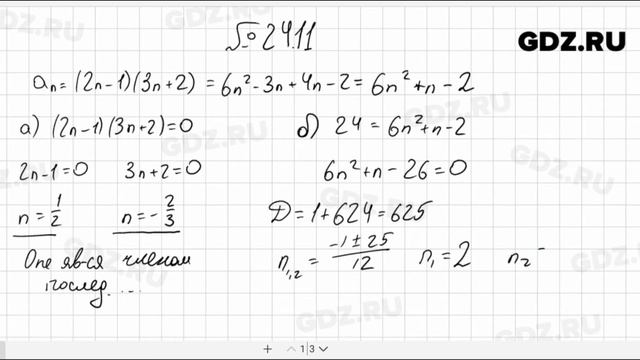 №24.11
GDZ.RU
aₙ = (2n-1)(3n+2) = 6n² - 3n + 4n - 2 = 6n² + n - 2
а) (2n-1)(3n+2)=0
2n-1=0 3n+2=0
n = 1/2 n = -2/3
Оне яв-ся членом
послед. ...
б) 24 = 6n²+n-2
6n²+n-26=0
D = 1+624 = 625
n₁,₂ = (-1 ± 25)/12 n₁ = 2 n₂ -
+ 1|3